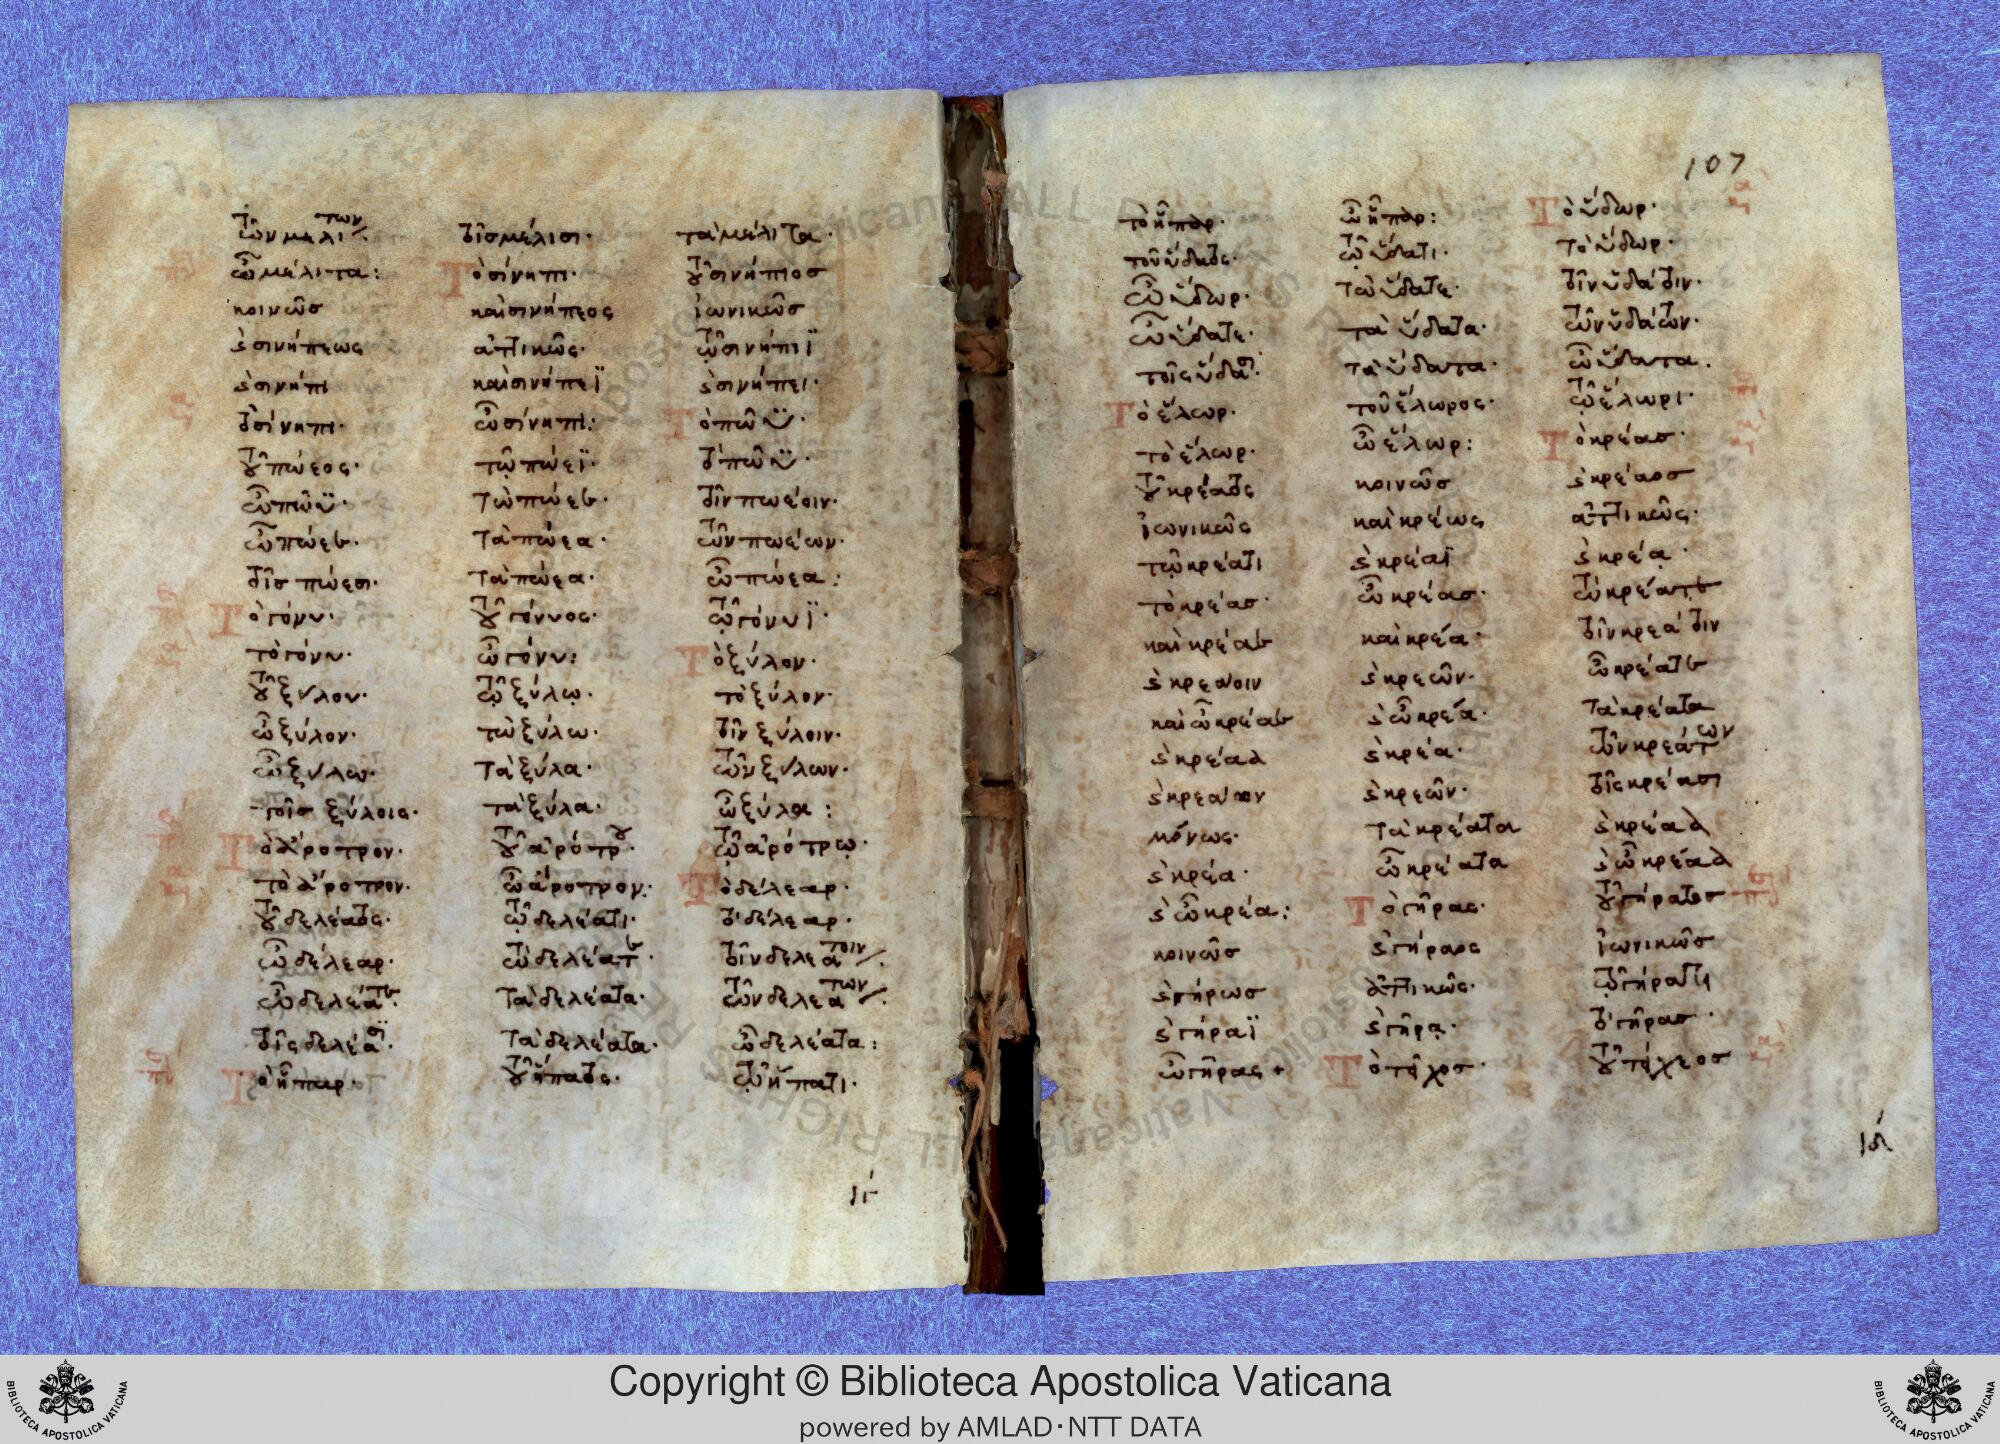 τῶν μελίτων τοῖς μέλισι· τὰ μέλιτα·
ὦ μέλιτα: Τὸ σίνηπι· τοῦ σινήπιος
κοινῶς καὶ σινήπεος ἰωνικῶς
ϗ σινήπεως ἀττικῶς· τῷ σινήπιϊ
ϗ σινήπι καὶ σινήπεϊ ϗ σινήπει·
τὸ σίνηπι· ὦ σίνηπι: Τὸ πῶϋ·
τοῦ πώεος· τῷ πώεϊ· τὸ πῶϋ·
ὦ πῶϋ· τὼ πώεε· τοῖν πωέοιν·
ὦ πώεε· τὰ πώεα· τῶν πωέων·
τοῖς πώεσι· τὰ πώεα· ὦ πώεα:
Τὸ γόνυ· τοῦ γόνυος· τῷ γόνυϊ·
τὸ γόνυ· ὦ γόνυ: Τὸ ξύλον·
τοῦ ξύλου· τῷ ξύλῳ· τὸ ξύλον·
ὦ ξύλον· τὼ ξύλω· τοῖν ξύλοιν·
ὦ ξύλω· τὰ ξύλα· τῶν ξύλων·
τοῖς ξύλοις· τὰ ξύλα· ὦ ξύλα:
Τὸ ἄροτρον· τοῦ ἀρότρου· τῷ ἀρότρῳ·
τὸ ἄροτρον· ὦ ἄροτρον: Τὸ δέλεαρ·
τοῦ δελέατος· τῷ δελέατι· τὸ δέλεαρ·
ὦ δέλεαρ· τὼ δελέατε· τοῖν δελεάτοιν·
ὦ δελέατε· τὰ δελέατα· τῶν δελεάτων·
τοῖς δελέασι· τὰ δελέατα· ὦ δελέατα:
Τὸ ἧπαρ· τοῦ ἥπατος· τῷ ἥπατι·
ιγ
107
τὸ ἧπαρ· ὦ ἧπαρ: Τὸ ὕδωρ·
τοῦ ὕδατος· τῷ ὕδατι· τὸ ὕδωρ·
ὦ ὕδωρ· τὼ ὕδατε· τοῖν ὑδάτοιν·
ὦ ὕδατε· τὰ ὕδατα· τῶν ὑδάτων·
τοῖς ὕδασι· τὰ ὕδατα· ὦ ὕδατα·
Τὸ ἕλωρ· τοῦ ἕλωρος· τῷ ἕλωρι·
τὸ ἕλωρ· ὦ ἕλωρ: Τὸ κρέας·
τοῦ κρέατος κοινῶς ϗ κρέαος
ἰωνικῶς καὶ κρέως ἀττικῶς·
τῷ κρέατι ϗ κρέαϊ ϗ κρέᾳ·
τὸ κρέας· ὦ κρέας· τὼ κρέατε
καὶ κρέαε καὶ κρέα· τοῖν κρεάτοιν
ϗ κρεάοιν ϗ κρεῶν· ὦ κρέατε
καὶ ὦ κρέαε ϗ ὦ κρέα· τὰ κρέατα
ϗ κρέαα ϗ κρέα· τῶν κρεάτων
ϗ κρεάων ϗ κρεῶν· τοῖς κρέασι
μόνως· τὰ κρέατα ϗ κρέαα
ϗ κρέα· ὦ κρέατα ϗ ὦ κρέαα
ϗ ὦ κρέα: Τὸ γῆρας· τοῦ γήρατος
κοινῶς ϗ γήραος ἰωνικῶς
ϗ γήρως ἀττικῶς· τῷ γήρατι
ϗ γήραϊ ϗ γήρᾳ· τὸ γῆρας·
ὦ γῆρας + Τὸ τεῖχος· τοῦ τείχεος
ιδ
Copyright © Biblioteca Apostolica Vaticana
powered by AMLAD·NTT DATA
BIBLIOTECA APOSTOLICA VATICANA
BIBLIOTECA APOSTOLICA VATICANA